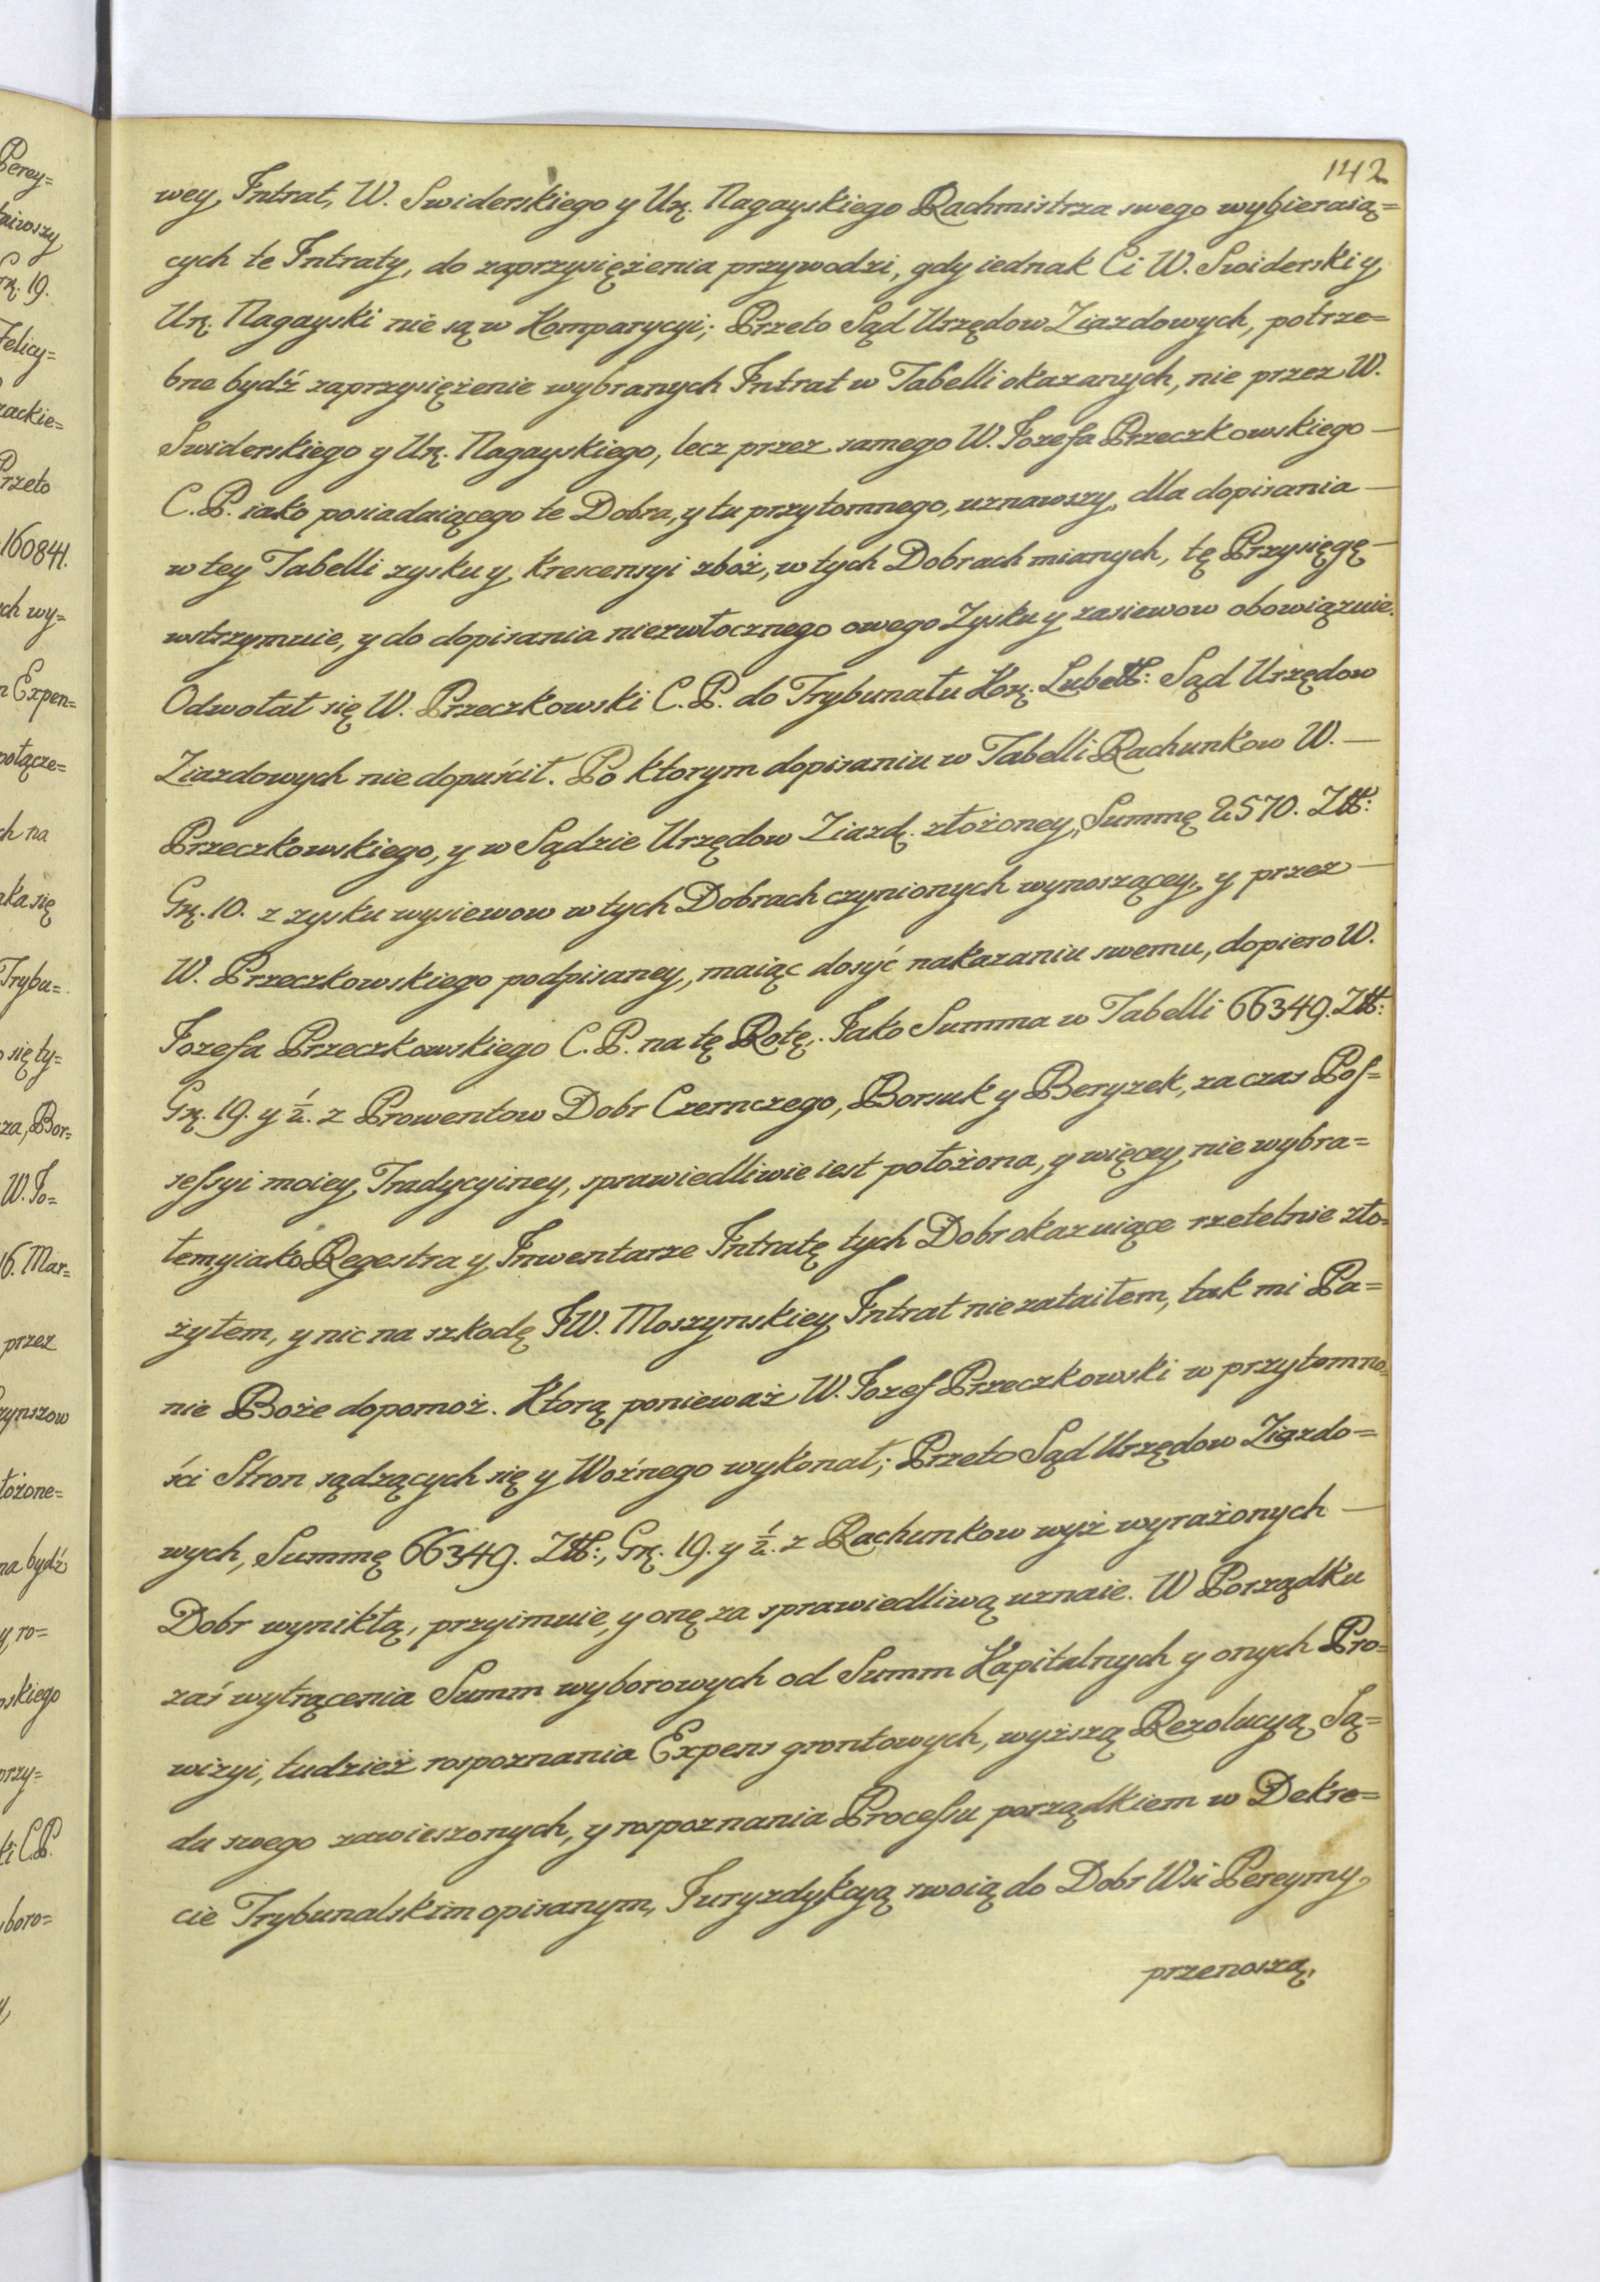 142
wey Intrat, W. Swiderskiego y Ur. Nagayskiego Rachmistrza swego wybieraią=
cych te Intraty, do zaprzysiężenia przywodzi, gdy iednak Ci W. Swiderski y
Ur. Nagayski nie są w Komparycyi; Przeto Sąd Urzędow Ziazdowych, potrze=
bne bydź zaprzysiężenie wybranych Intrat w Tabelli okazanych, nie przez W.
Swiderskiego y Ur. Nagayskiego, lecz przez samego W. Iozefa Przeczkowskiego —
C. P. iako posiadaiącego te Dobra, y tu przytomnego, uznawszy, dla dopisania —
w tey Tabelli zysku y krescensyi zboż, w tych Dobrach mianych, tę Przysięgę —
wstrzymuie, y do dopisania niezwłocznego owego Zysku y zasiewow obowiązuie.
Odwołał się W. Przeczkowski C. P. do Trybunału Kor. Lubell: Sąd Urzędow
Ziazdowych nie dopuścił. Po ktorym dopisaniu w Tabelli Rachunkow W. —
Przeczkowskiego, y w Sądzie Urzędow Ziazd. złożoney, Summę 2570. Złł:
Gr. 10. z zysku wysiewow w tych Dobrach czynionych wynoszącey, y przez —
W. Przeczkowskiego podpisaney, maiąc dosyć nakazaniu swemu, dopiero W.
Iozefa Przeczkowskiego C. P. na tę Rotę. Iako Summa w Tabelli 66349. Złł:
Gr. 19. y ½. z Prowentow Dobr Czernczego, Borsuk y Beryzek, za czas Pos=
sessyi moiey Tradycyiney, sprawiedliwie iest położona, y więcey nie wybra=
łem y iako Regestra y Inwentarze Intratę tych Dobr okazuiące rzetelnie zło=
żyłem, y nic na szkodę JW. Moszynskiey Intrat nie zataiłem, tak mi Pa=
nie Boże dopomoż. Ktorą ponieważ W. Iozef Przeczkowski w przytomno=
ści Stron sądzących się y Woźnego wykonał; Przeto Sąd Urzędow Ziazdo=
wych, Summę 66349. Złł:, Gr. 19. y ½. z Rachunkow wyż wyrażonych —
Dobr wynikłą, przyimuie, y onę za sprawiedliwą uznaie. W Porządku
zaś wytrącenia Summ wyborowych od Summ Kapitalnych y onych Pro=
wizyi, tudzież rospoznania Expens grontowych, wyższą Rezolucyą Są=
du swego zawieszonych, y rospoznania Processu porządkiem w Dekre=
cie Trybunalskim opisanym, Iuryzdykcyą swoią do Dobr Wsi Pereymy
przenoszą,